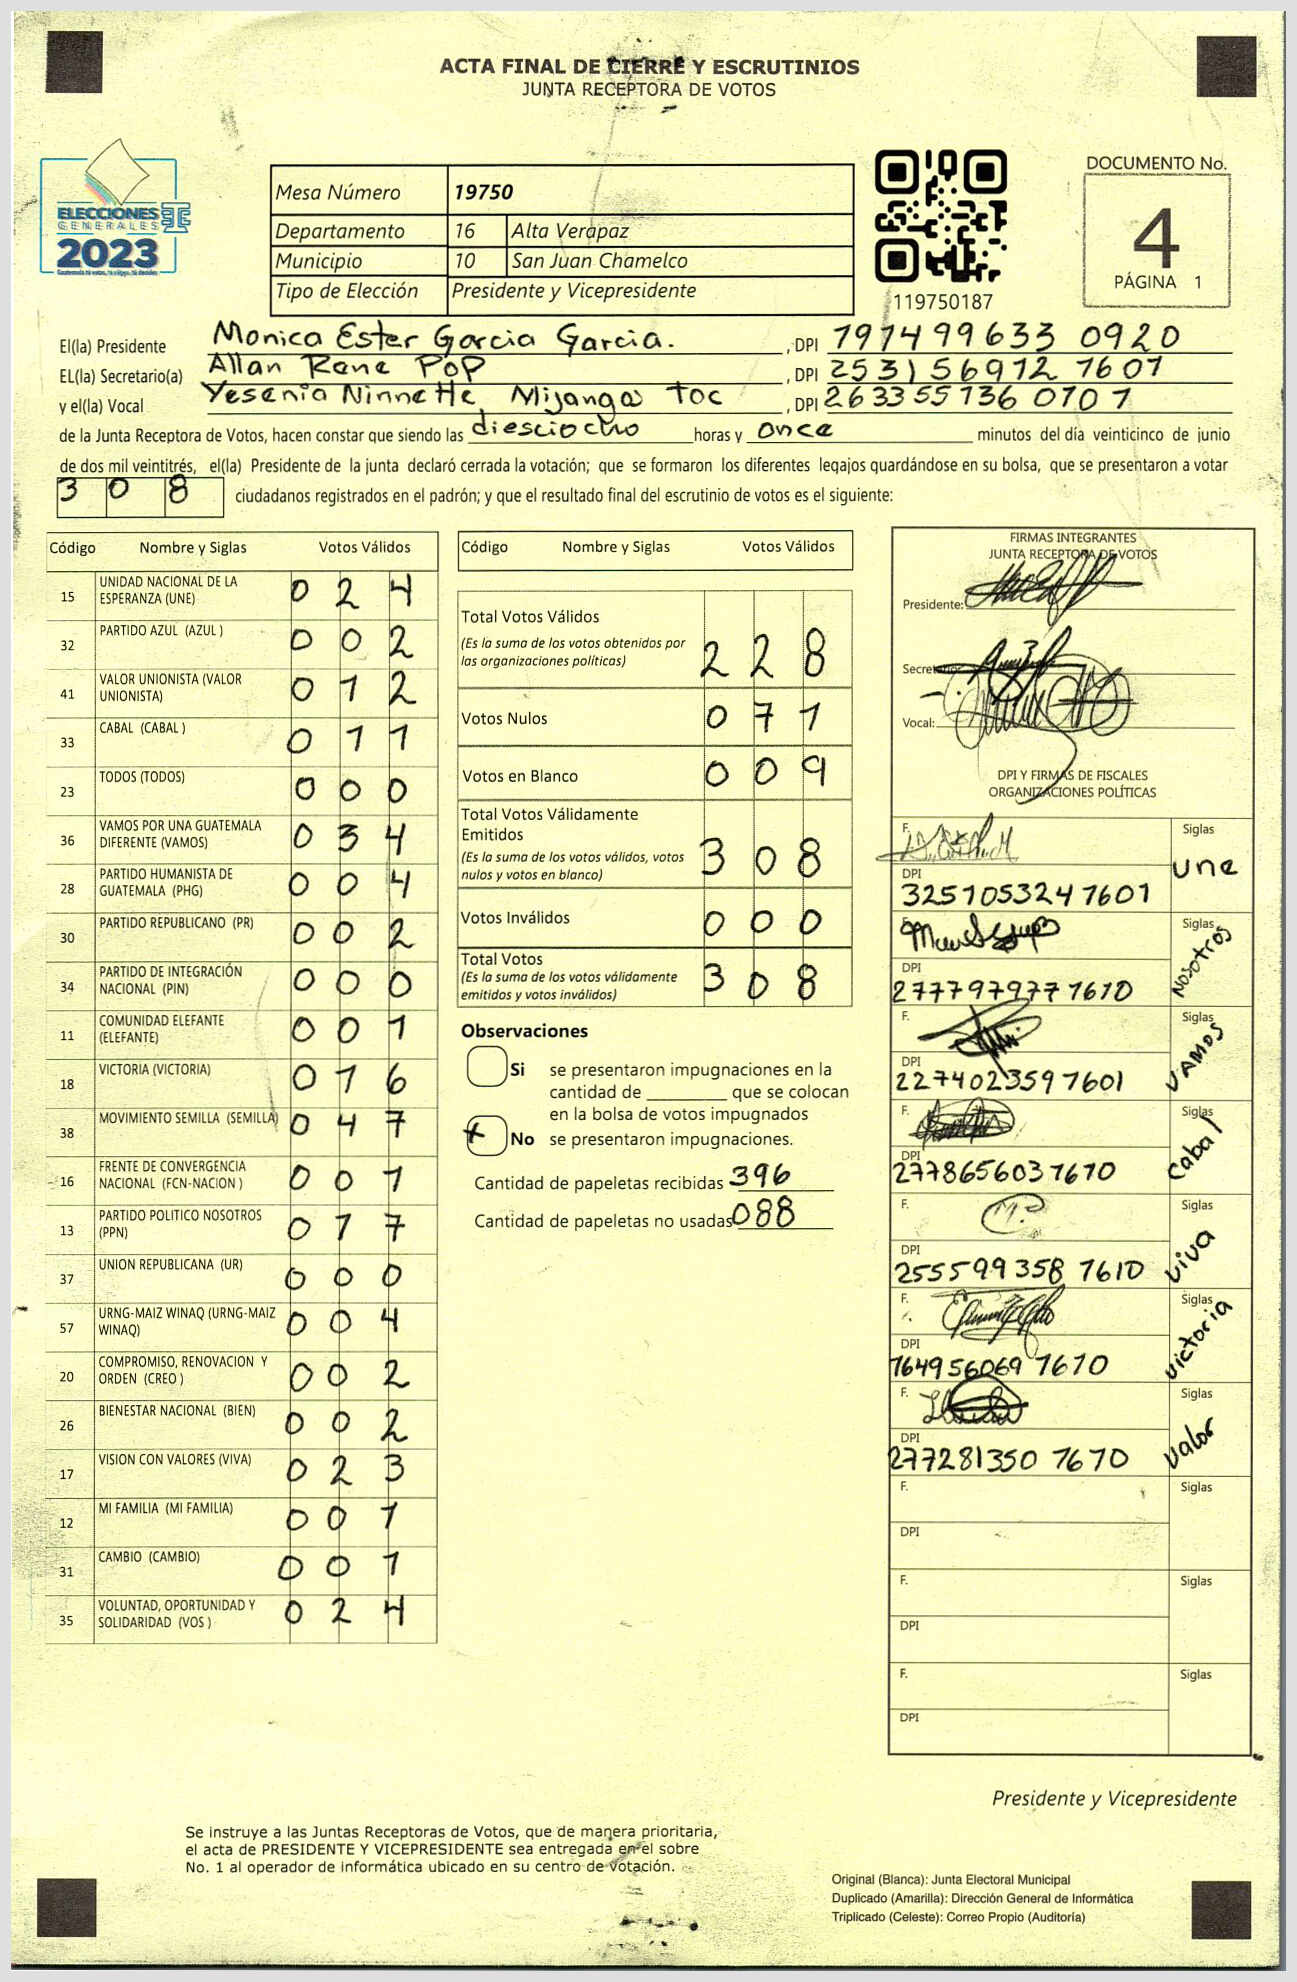 ACTA FINAL DE CIERRE Y ESCRUTINIOS
JUNTA RECEPTORA DE VOTOS
ELECCIONES
GENERALES
2023
Mesa Número 19750
Departamento 16 Alta Verapaz
Municipio 10 San Juan Chamelco
Tipo de Elección Presidente y Vicepresidente
119750187
DOCUMENTO No.
4
PÁGINA 1
El(la) Presidente Monica Ester Garcia Garcia. , DPI 191499633 0920
EL(la) Secretario(a) Allan Rene POP , DPI 253156912 1601
y el(la) Vocal Yesenia Ninnette Mijangos Toc , DPI 263355136 0101
de la Junta Receptora de Votos, hacen constar que siendo las diesciocho horas y once minutos del día veinticinco de junio
de dos mil veintitrés, el(la) Presidente de la junta declaró cerrada la votación; que se formaron los diferentes legajos quardándose en su bolsa, que se presentaron a votar
308 ciudadanos registrados en el padrón; y que el resultado final del escrutinio de votos es el siguiente:
Código Nombre y Siglas Votos Válidos
15 UNIDAD NACIONAL DE LA ESPERANZA (UNE) 0 2 4
32 PARTIDO AZUL (AZUL ) 0 0 2
41 VALOR UNIONISTA (VALOR UNIONISTA) 0 1 2
33 CABAL (CABAL ) 0 1 1
23 TODOS (TODOS) 0 0 0
36 VAMOS POR UNA GUATEMALA DIFERENTE (VAMOS) 0 3 4
28 PARTIDO HUMANISTA DE GUATEMALA (PHG) 0 0 4
30 PARTIDO REPUBLICANO (PR) 0 0 2
34 PARTIDO DE INTEGRACIÓN NACIONAL (PIN) 0 0 0
11 COMUNIDAD ELEFANTE (ELEFANTE) 0 0 1
18 VICTORIA (VICTORIA) 0 1 6
38 MOVIMIENTO SEMILLA (SEMILLA) 0 4 7
16 FRENTE DE CONVERGENCIA NACIONAL (FCN-NACION ) 0 0 1
13 PARTIDO POLITICO NOSOTROS (PPN) 0 1 7
37 UNION REPUBLICANA (UR) 0 0 0
57 URNG-MAIZ WINAQ (URNG-MAIZ WINAQ) 0 0 4
20 COMPROMISO, RENOVACION Y ORDEN (CREO ) 0 0 2
26 BIENESTAR NACIONAL (BIEN) 0 0 2
17 VISION CON VALORES (VIVA) 0 2 3
12 MI FAMILIA (MI FAMILIA) 0 0 1
31 CAMBIO (CAMBIO) 0 0 1
35 VOLUNTAD, OPORTUNIDAD Y SOLIDARIDAD (VOS ) 0 2 4
Código Nombre y Siglas Votos Válidos
Total Votos Válidos
(Es la suma de los votos obtenidos por
las organizaciones políticas) 2 2 8
Votos Nulos 0 7 1
Votos en Blanco 0 0 9
Total Votos Válidamente
Emitidos
(Es la suma de los votos válidos, votos
nulos y votos en blanco) 3 0 8
Votos Inválidos 0 0 0
Total Votos
(Es la suma de los votos válidamente
emitidos y votos inválidos) 3 0 8
Observaciones
Si se presentaron impugnaciones en la
cantidad de ________ que se colocan
en la bolsa de votos impugnados
x No se presentaron impugnaciones.
Cantidad de papeletas recibidas 396
Cantidad de papeletas no usadas 088
FIRMAS INTEGRANTES
JUNTA RECEPTORA DE VOTOS
Presidente:
Secretario:
Vocal:
DPI Y FIRMAS DE FISCALES
ORGANIZACIONES POLÍTICAS
F. Siglas une
DPI 325105324 1601
F. Siglas NOSOTROS
DPI 277797977 1610
F. Siglas VAMOS
DPI 227402359 1601
F. Siglas Cabal
DPI 277865603 1610
F. Siglas viva
DPI 255599358 1610
F. Siglas victoria
DPI 164956069 1610
F. Siglas Valor
DPI 277281350 1610
F. Siglas
DPI
F. Siglas
DPI
F. Siglas
DPI
Presidente y Vicepresidente
Se instruye a las Juntas Receptoras de Votos, que de manera prioritaria,
el acta de PRESIDENTE Y VICEPRESIDENTE sea entregada en el sobre
No. 1 al operador de informática ubicado en su centro de votación.
Original (Blanca): Junta Electoral Municipal
Duplicado (Amarilla): Dirección General de Informática
Triplicado (Celeste): Correo Propio (Auditoría)